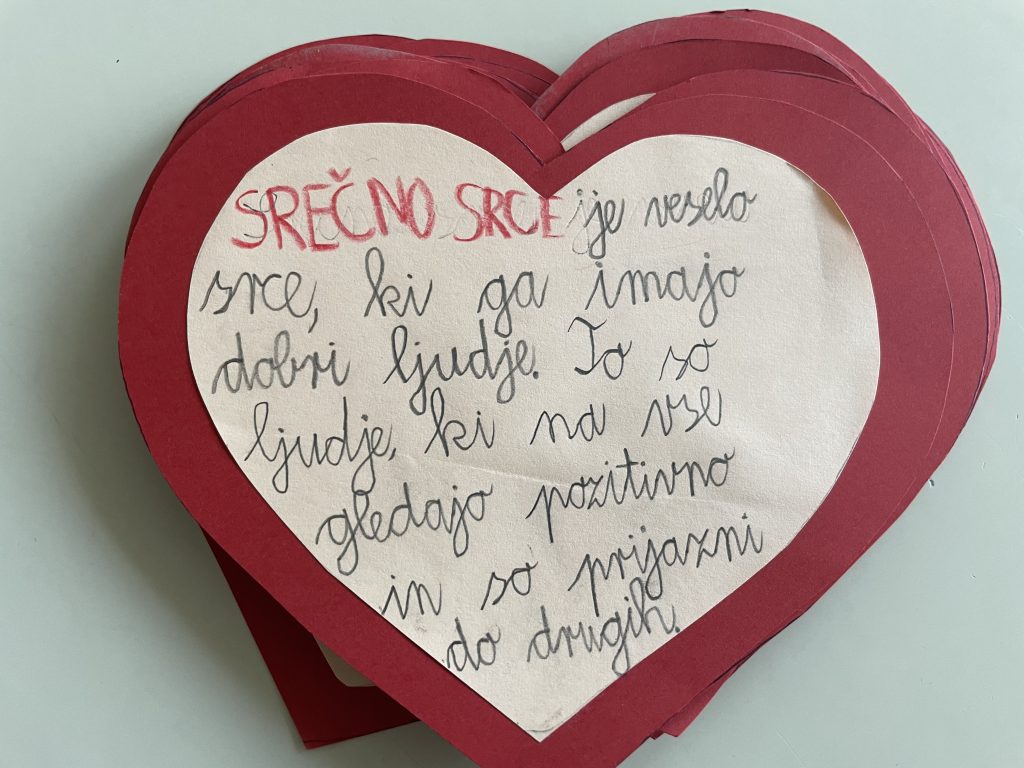 SREČNO SRCE je veselo
srce, ki ga imajo
dobri ljudje. To so
ljudje, ki na vse
gledajo pozitivno
in so prijazni
do drugih.